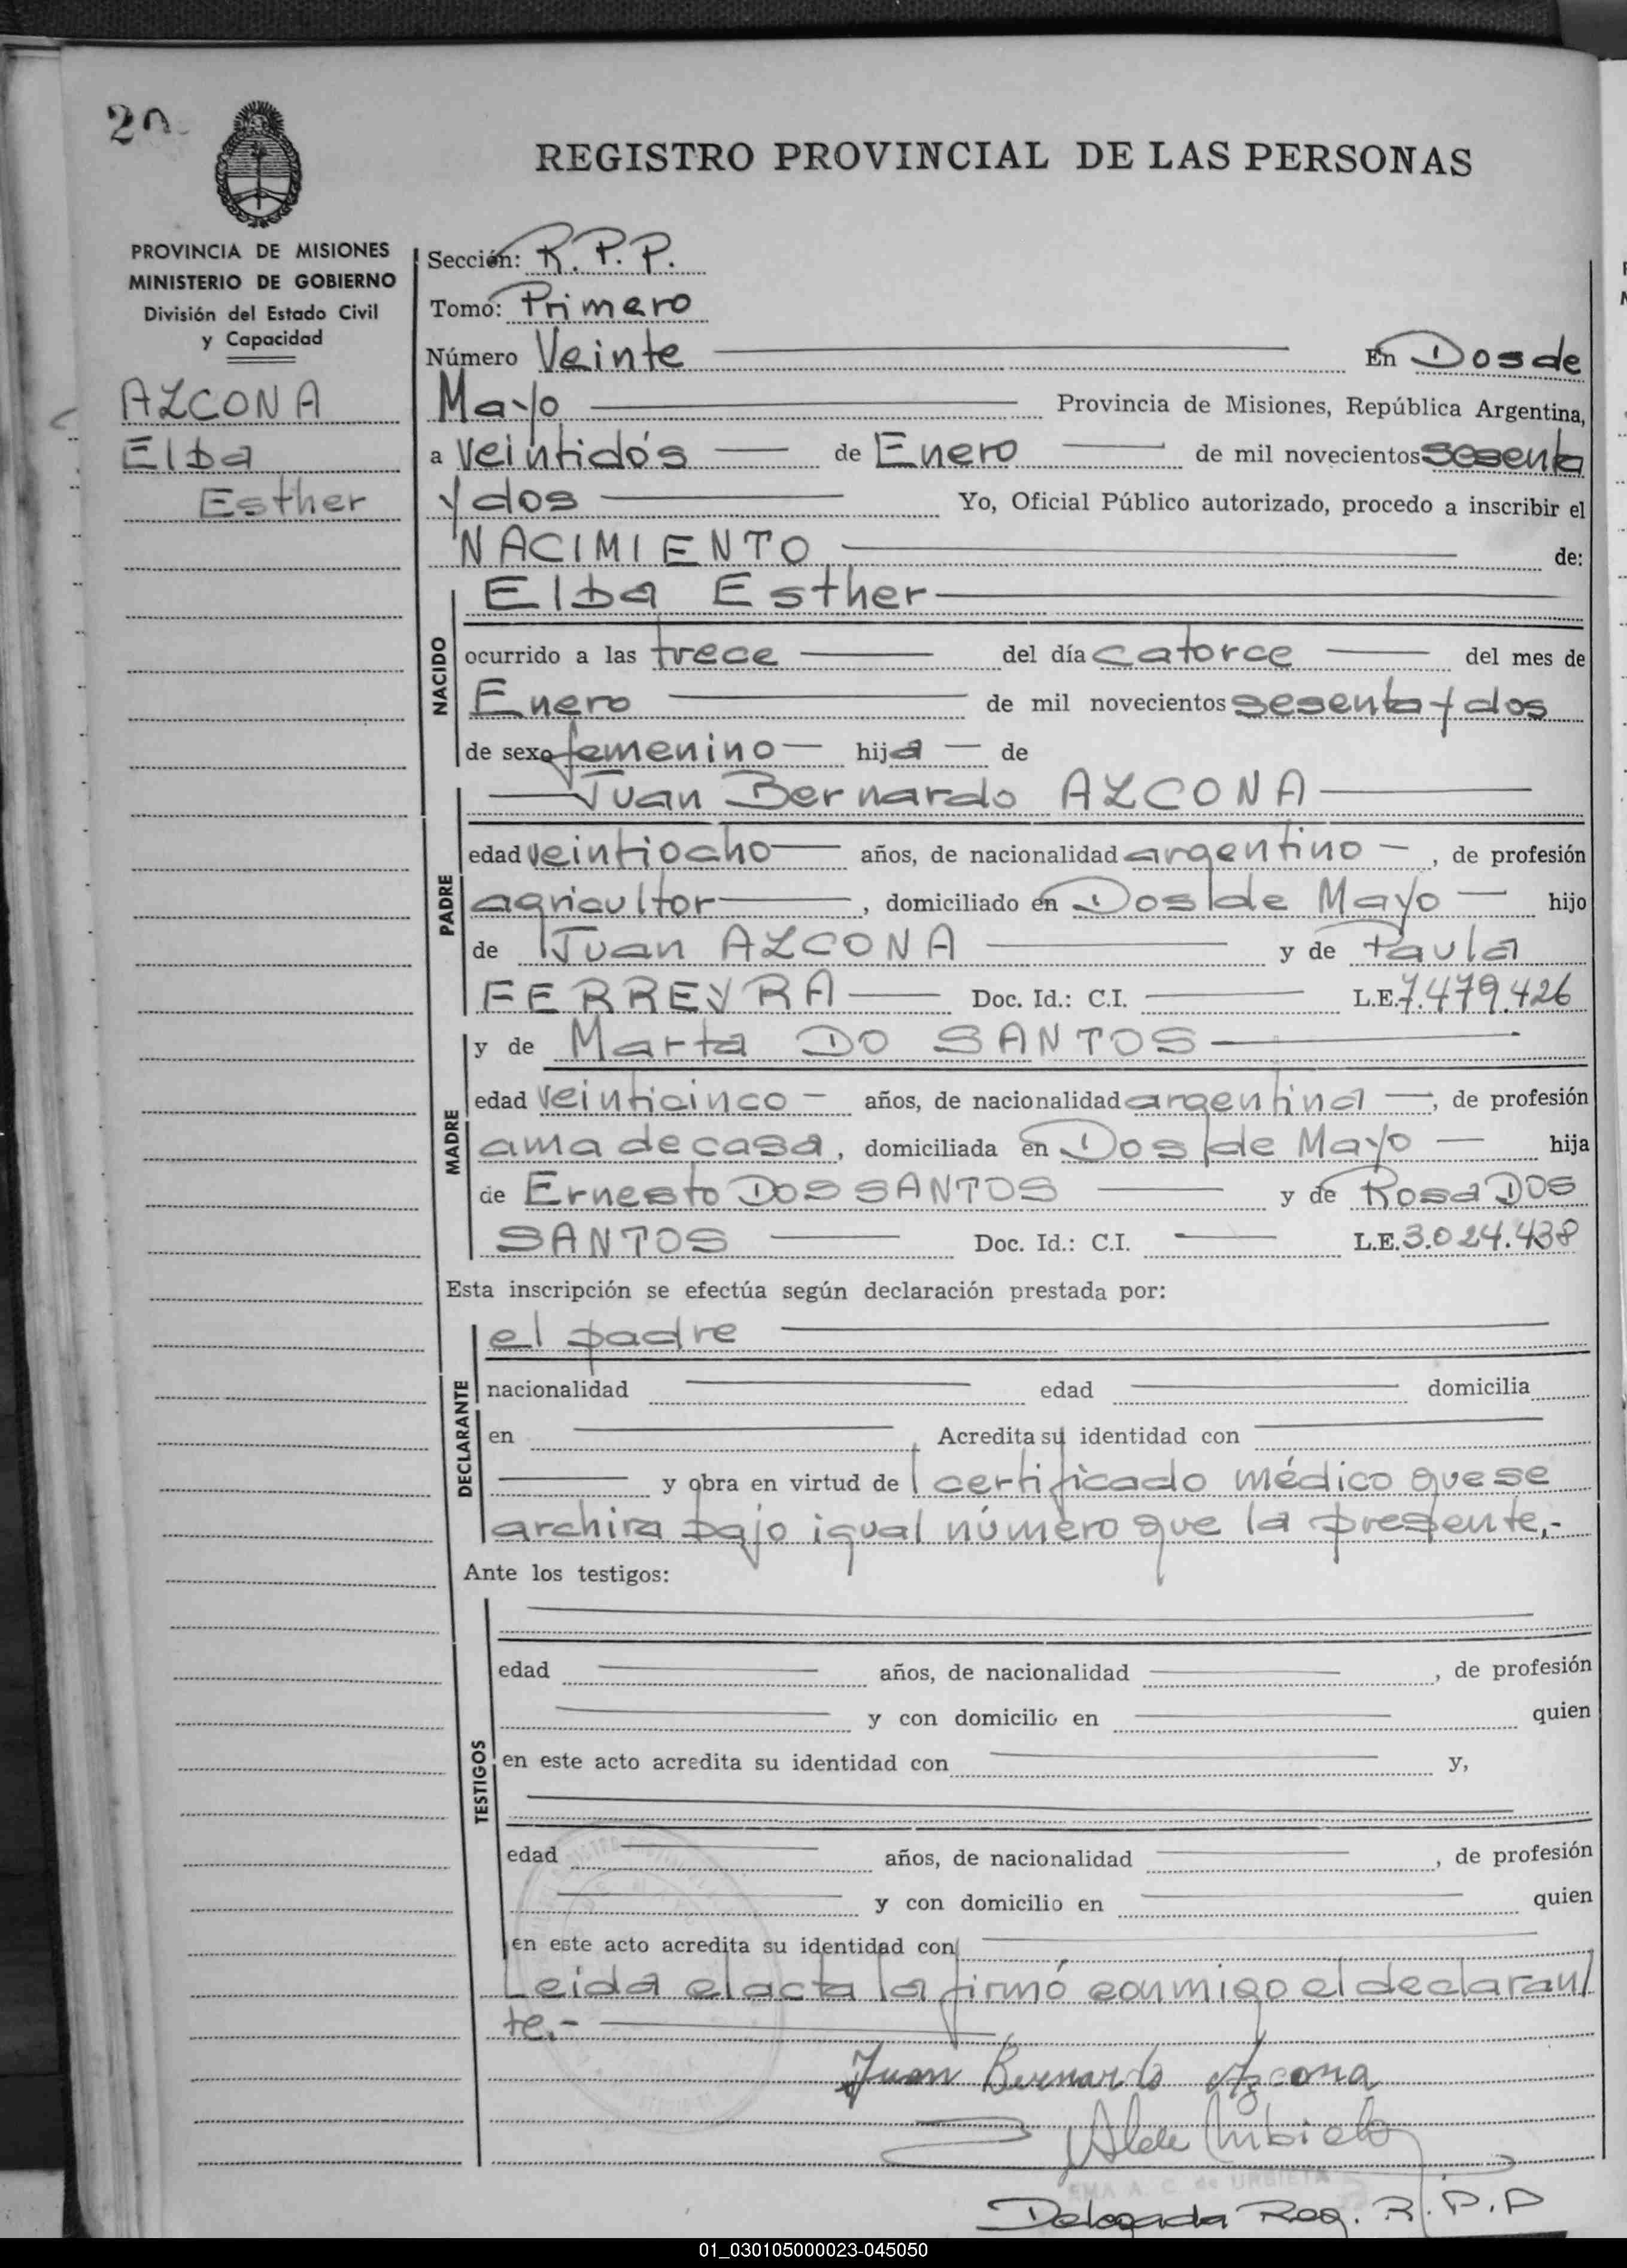 20
REGISTRO PROVINCIAL DE LAS PERSONAS
PROVINCIA DE MISIONES
MINISTERIO DE GOBIERNO
División del Estado Civil
y Capacidad
AZCONA
Elba
Esther
Sección: R.P.P.
Tomo: Primero
Número Veinte En Dos de
Mayo Provincia de Misiones, República Argentina,
a veintidós de Enero de mil novecientos sesenta
y dos Yo, Oficial Público autorizado, procedo a inscribir el
NACIMIENTO de:
NACIDO
Elba Esther
ocurrido a las trece del día catorce del mes de
Enero de mil novecientos sesenta y dos
de sexo femenino hija de
Juan Bernardo AZCONA
PADRE
edad veintiocho años, de nacionalidad argentino, de profesión
agricultor, domiciliado en Dos de Mayo hijo
de Juan AZCONA y de Paula
FERREYRA Doc. Id.: C.I. L.E. 7.479.426
y de Marta DO SANTOS
MADRE
edad veinticinco años, de nacionalidad argentina, de profesión
ama de casa, domiciliada en Dos de Mayo hija
de Ernesto DOS SANTOS y de Rosa DOS
SANTOS Doc. Id.: C.I. L.E. 3.024.438
Esta inscripción se efectúa según declaración prestada por:
DECLARANTE
el padre
nacionalidad edad domicilia
en Acredita su identidad con
y obra en virtud de certificado médico que se
archiva bajo igual número que la presente.-
Ante los testigos:
TESTIGOS
edad años, de nacionalidad , de profesión
y con domicilio en quien
en este acto acredita su identidad con y,
edad años, de nacionalidad , de profesión
y con domicilio en quien
en este acto acredita su identidad con
Leida el acta la firmó conmigo el declaran
te.-
Juan Bernardo Azcona
EMA A. C. de URBIETA
Delegada Reg. R.P.P
01_030105000023-045050